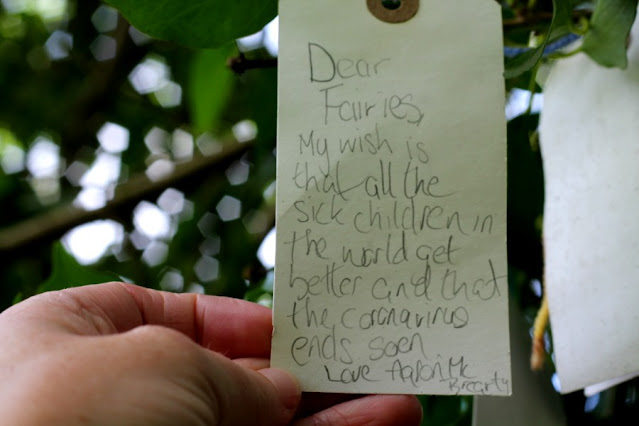 Dear
Fairies,
My wish is
that all the
sick children in
the world get
better and that
the coronavirus
ends soen
Love Aaron Mc
Brearty